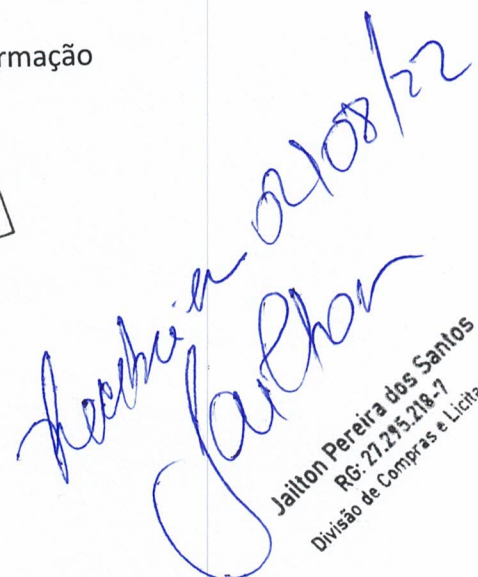 rmação
Recebi em 02/08/22
Jailton
Jailton Pereira dos Santos
RG: 27.295.218-7
Divisão de Compras e Licita